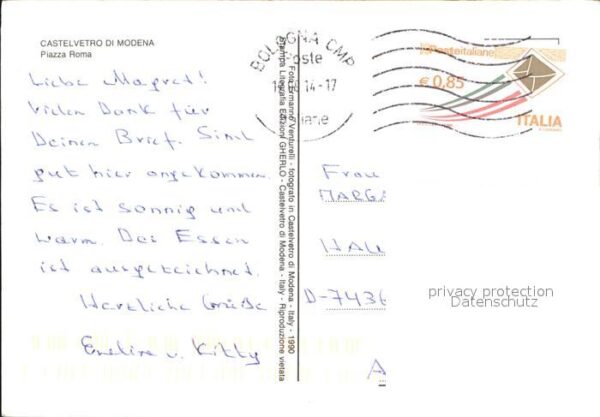 CASTELVETRO DI MODENA
Piazza Roma
Liebe Magret!
Vielen Dank für
Deinen Brief. Sind
gut hier angekommen.
Es ist sonnig und
warm. Das Essen
ist ausgezeichnet.
Herzliche Grüße
v. Kitty
Foto Ermanno Venturelli - fotografo in Castelvetro di Modena - Italy - 1990
Stampa Litografia Edizioni GHERLO - Castelvetro di Modena - Italy - Riproduzione vietata
BOLOGNA CMP
Poste
14-17
iane
Posteitaliane
€ 0,85
ITALIA
Frau
MARGA
HAU
D-7436
A
privacy protection
Datenschutz